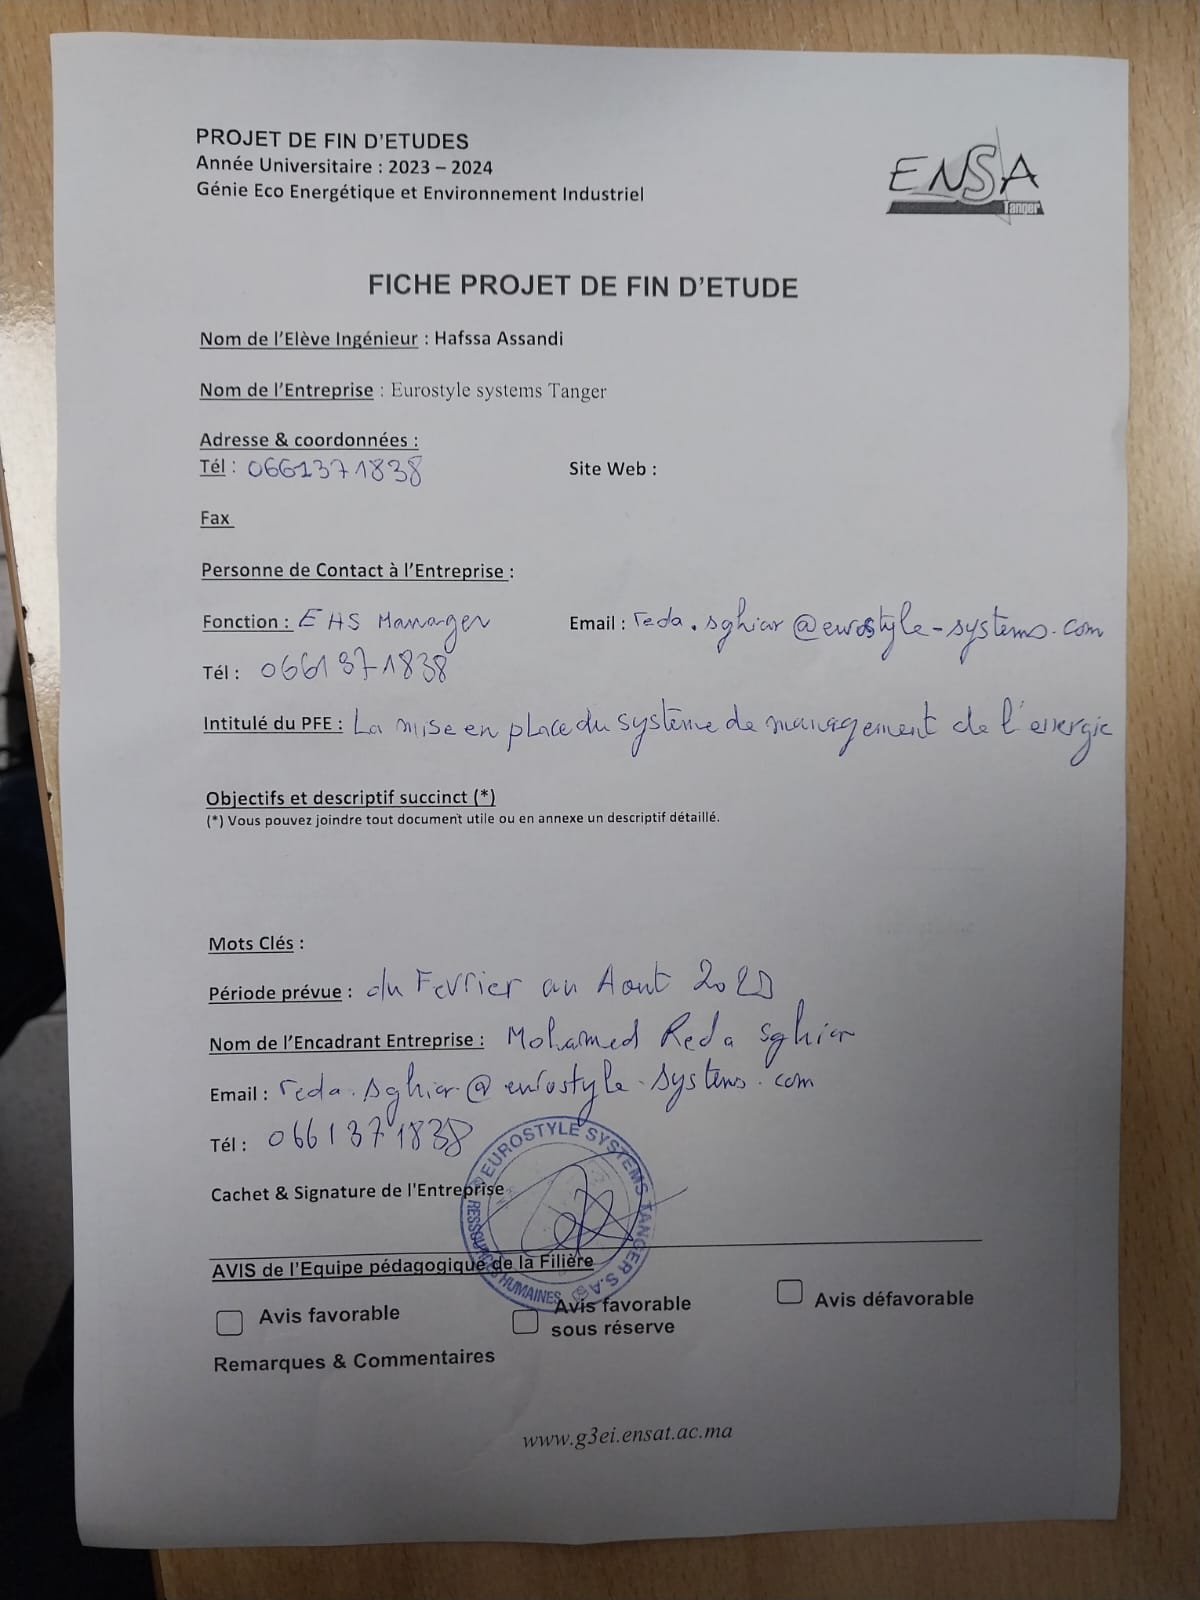 PROJET DE FIN D'ETUDES
Année Universitaire : 2023 – 2024
Génie Eco Energétique et Environnement Industriel
ENSA
Tanger
FICHE PROJET DE FIN D'ETUDE
Nom de l'Elève Ingénieur : Hafssa Assandi
Nom de l'Entreprise : Eurostyle systems Tanger
Adresse & coordonnées :
Tél : 0661371838 Site Web :
Fax
Personne de Contact à l'Entreprise :
Fonction : EHS Manager Email : reda.sghiar@eurostyle-systems.com
Tél : 0661371838
Intitulé du PFE : La mise en place du système de management de l'énergie
Objectifs et descriptif succinct (*)
(*) Vous pouvez joindre tout document utile ou en annexe un descriptif détaillé.
Mots Clés :
Période prévue : du Fevrier au Aout
Nom de l'Encadrant Entreprise : Mohamed Reda Sghiar
Email : reda.sghiar@eurostyle-systems.com
Tél : 0661371838
Cachet & Signature de l'Entreprise
EUROSTYLE SYSTEMS TANGER S.A
RESSOURCES HUMAINES
AVIS de l'Equipe pédagogique de la Filière
Avis favorable Avis favorable sous réserve Avis défavorable
Remarques & Commentaires
www.g3ei.ensat.ac.ma